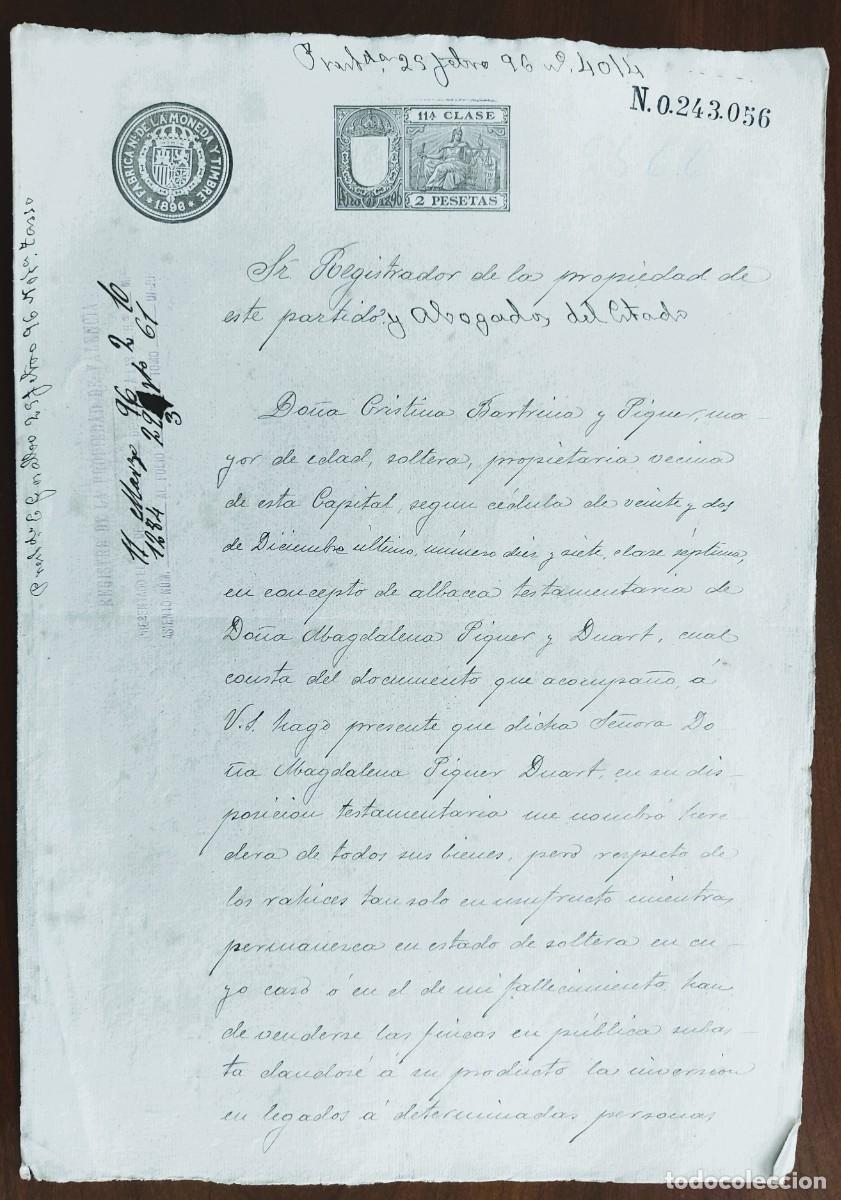 25 febro 96 nº 4014
N. 0.243.056
FABRICA Nal. DE LA MONEDA Y TIMBRE
1896
11ª CLASE
AÑO DE 1896
2 PESETAS
Sr. Registrador de la propiedad de
este partido y Abogados del Estado
Doña Cristina Bartrina y Piquer, ma-
yor de edad, soltera, propietaria, vecina
de esta Capital, segun cédula de veinte y dos
de Diciembre último, número diez y siete, clase séptima,
en concepto de albacea testamentaria de
Doña Magdalena Piquer y Duart, cual
consta del documento que acompaño, á
V.S. hago presente que dicha Señora Do
ña Magdalena Piquer Duart, en su dis-
posicion testamentaria me nombró here
dera de todos sus bienes, pero respecto de
los rahices tan solo en usufructo mientras
permanesca en estado de soltera en cu-
yo caso ó en el de mi fallecimiento han
de venderse las fincas en pública subas-
ta dandosé á su producto la inversion
en legados á determinadas personas
REGISTRO DE LA PROPIEDAD DE VALENCIA
PRESENTADO
11 Marzo 96 2 16
ASIENTO NÚM. 1284 AL FOLIO 29 TOMO 61
3
29 febro 96
todocoleccion.net